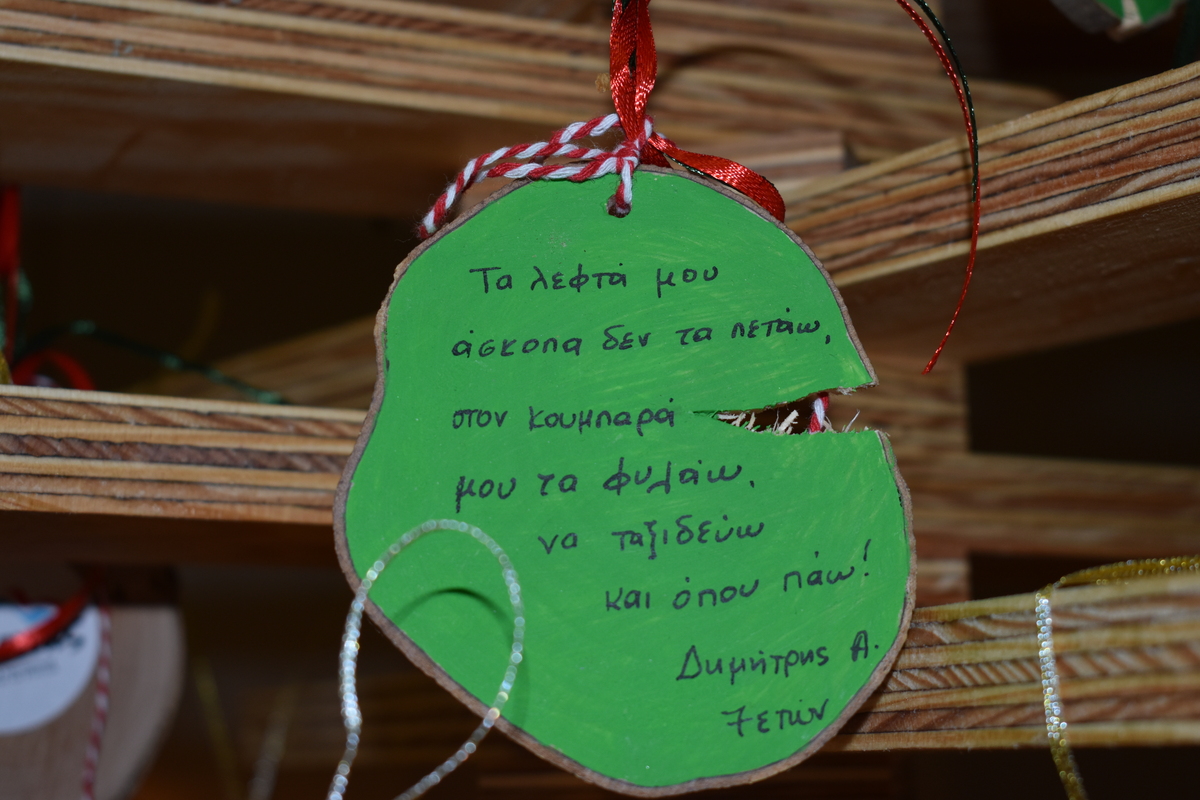 Τα λεφτά μου
άσκοπα δεν τα πετάω,
στον κουμπαρά
μου τα φυλάω,
να ταξιδεύω
και όπου πάω!
Δημήτρης Α.
7ετών